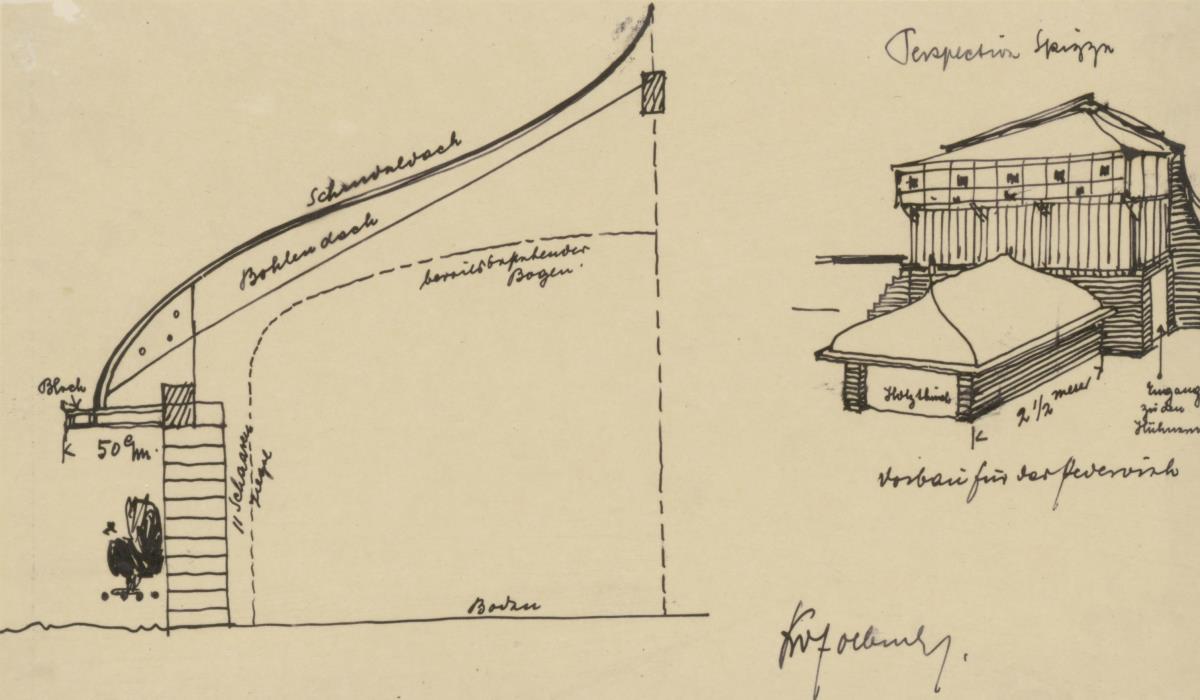 Schindeldach
Bohlendach
bereits bestehender
Bogen.
Blech
50 c/m.
11 Schaaren
Ziegel
Boden
Holzthür
2 1/2 meter
Eingang
zu den
Hühnern
Vorbau für das Federvieh